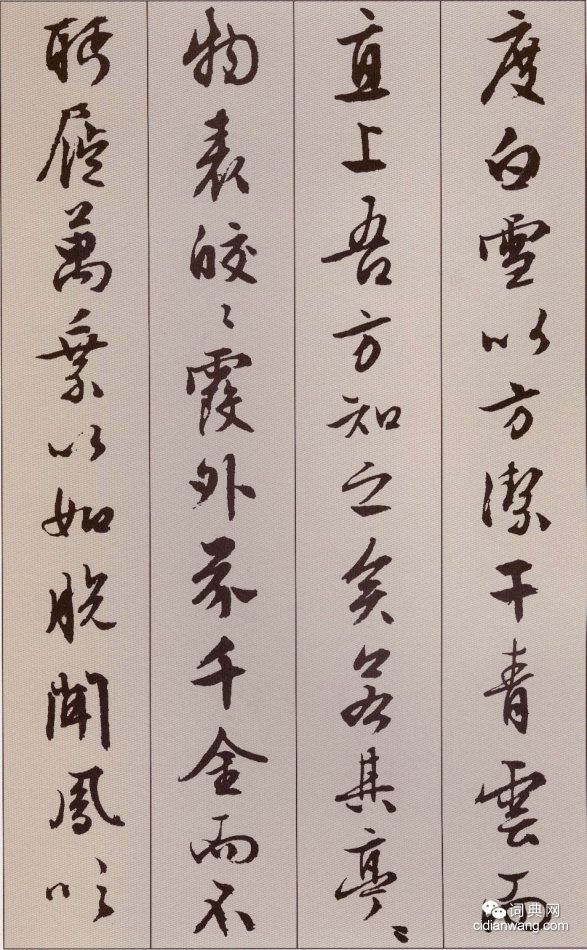 度白雪以方潔干青雲而
直上吾方知之矣若其亭〻
物表皎〻霞外芥千金而不
眄屣萬乘以如脫聞鳳吹
词典网
cidianwang.com